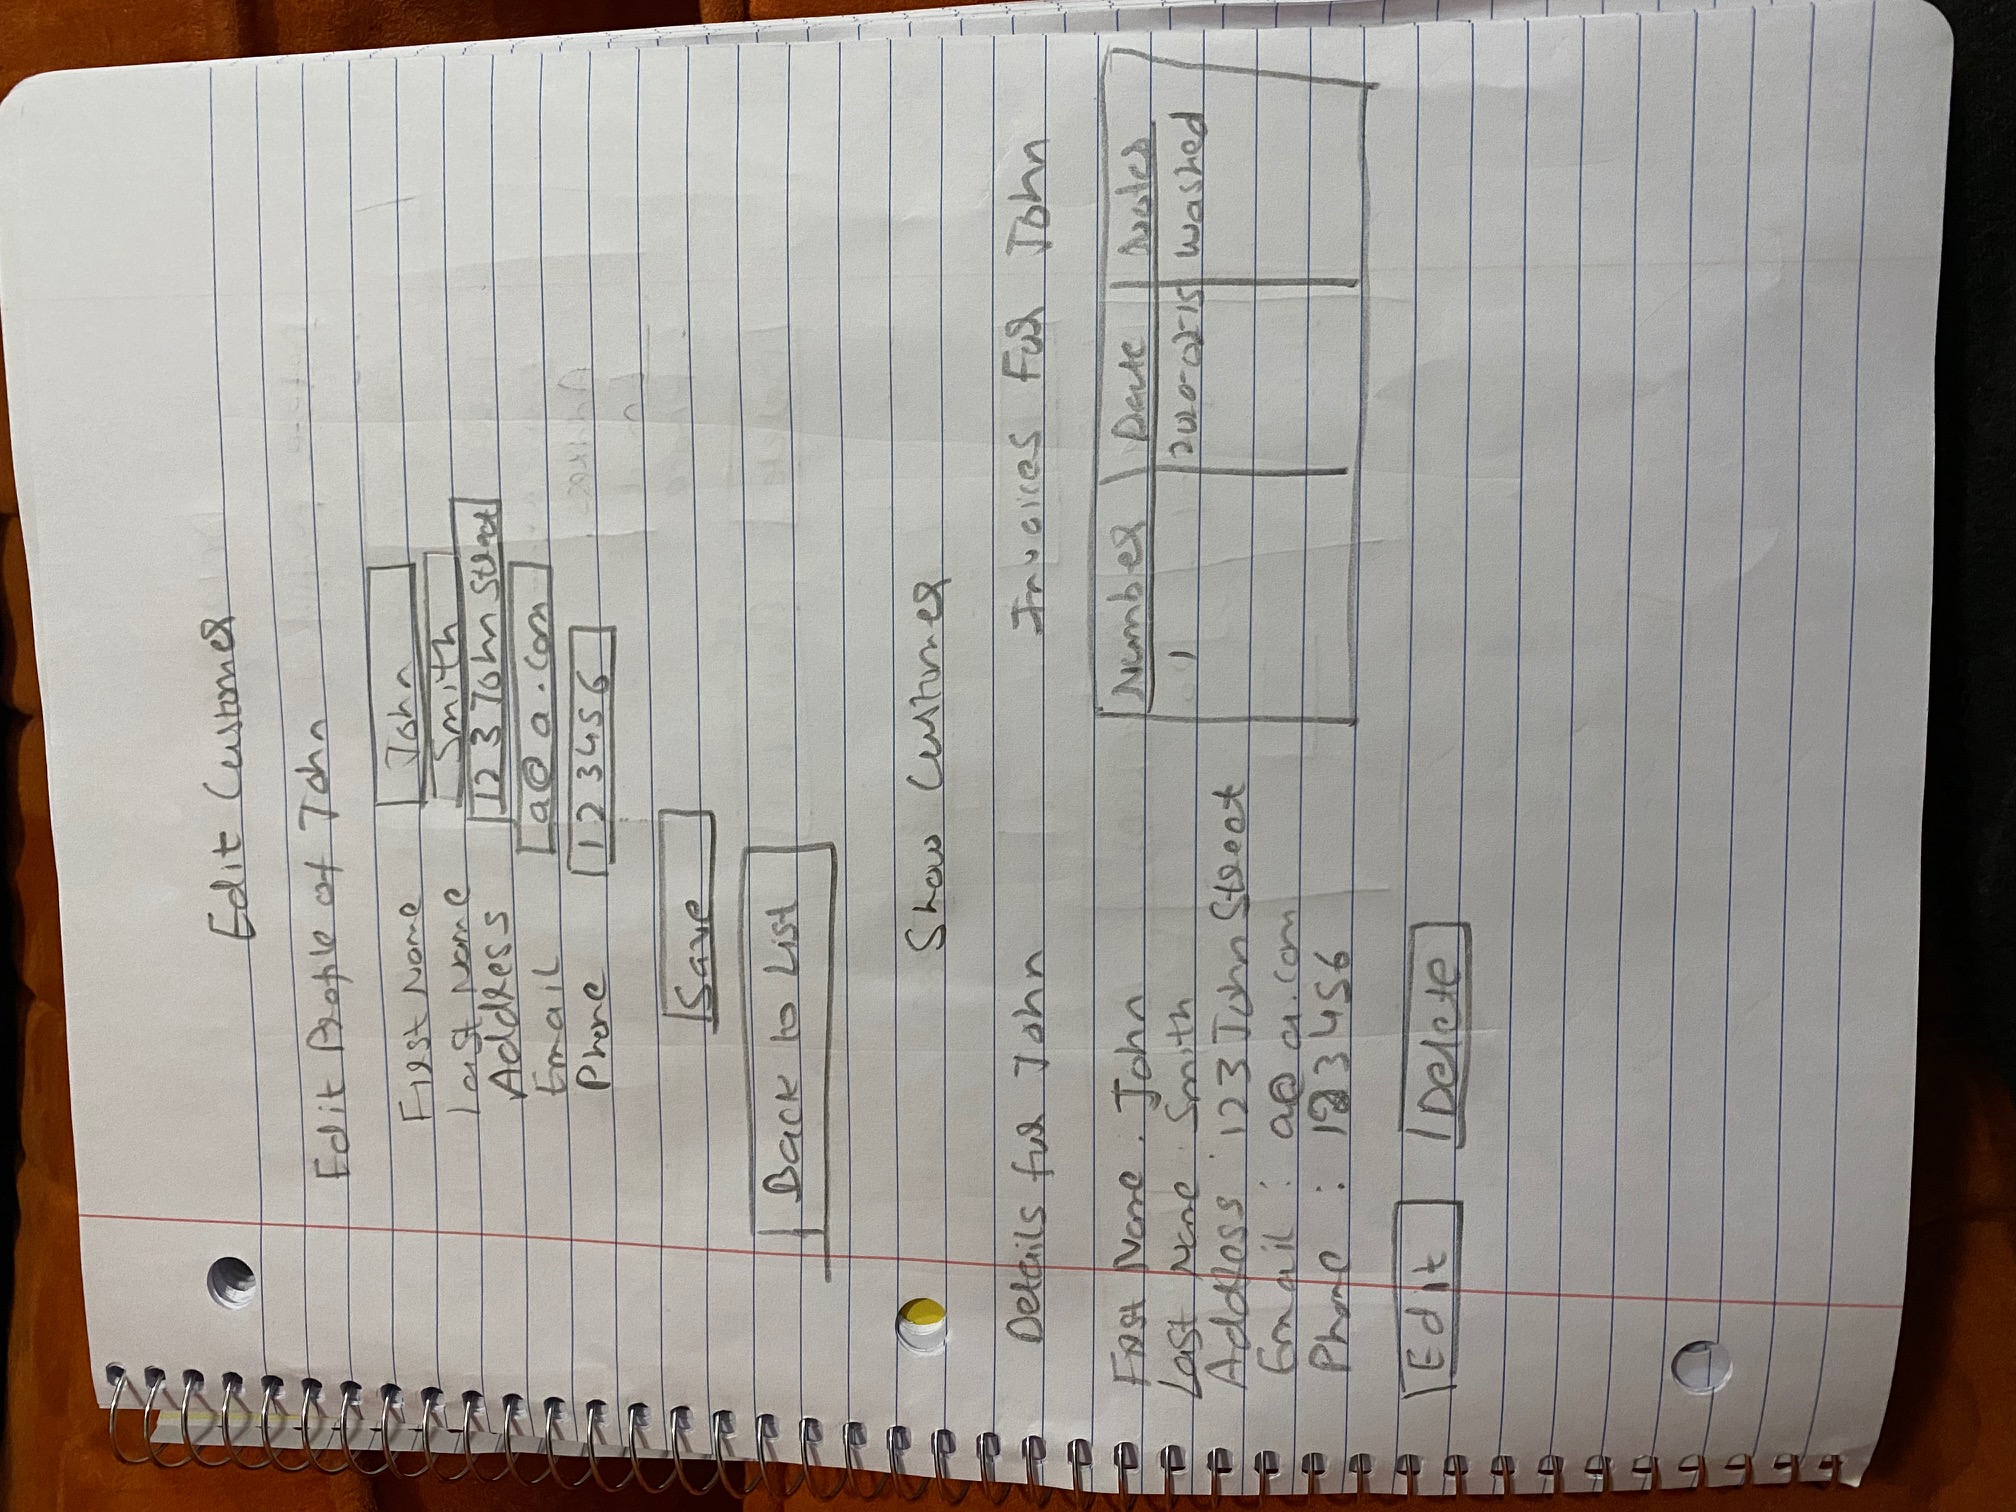 Edit Customer
Edit Profile of John
First Name John
Last Name Smith
Address 123 John Street
Email a@a.com
Phone 123456
Save
Back to List
Show Customer
Details for John
First Name : John
Last Name : Smith
Address : 123 John Street
Email : a@a.com
Phone : 123456
Edit Delete
Invoices For John
Number Date Notes
1 2020-02-15 Washed